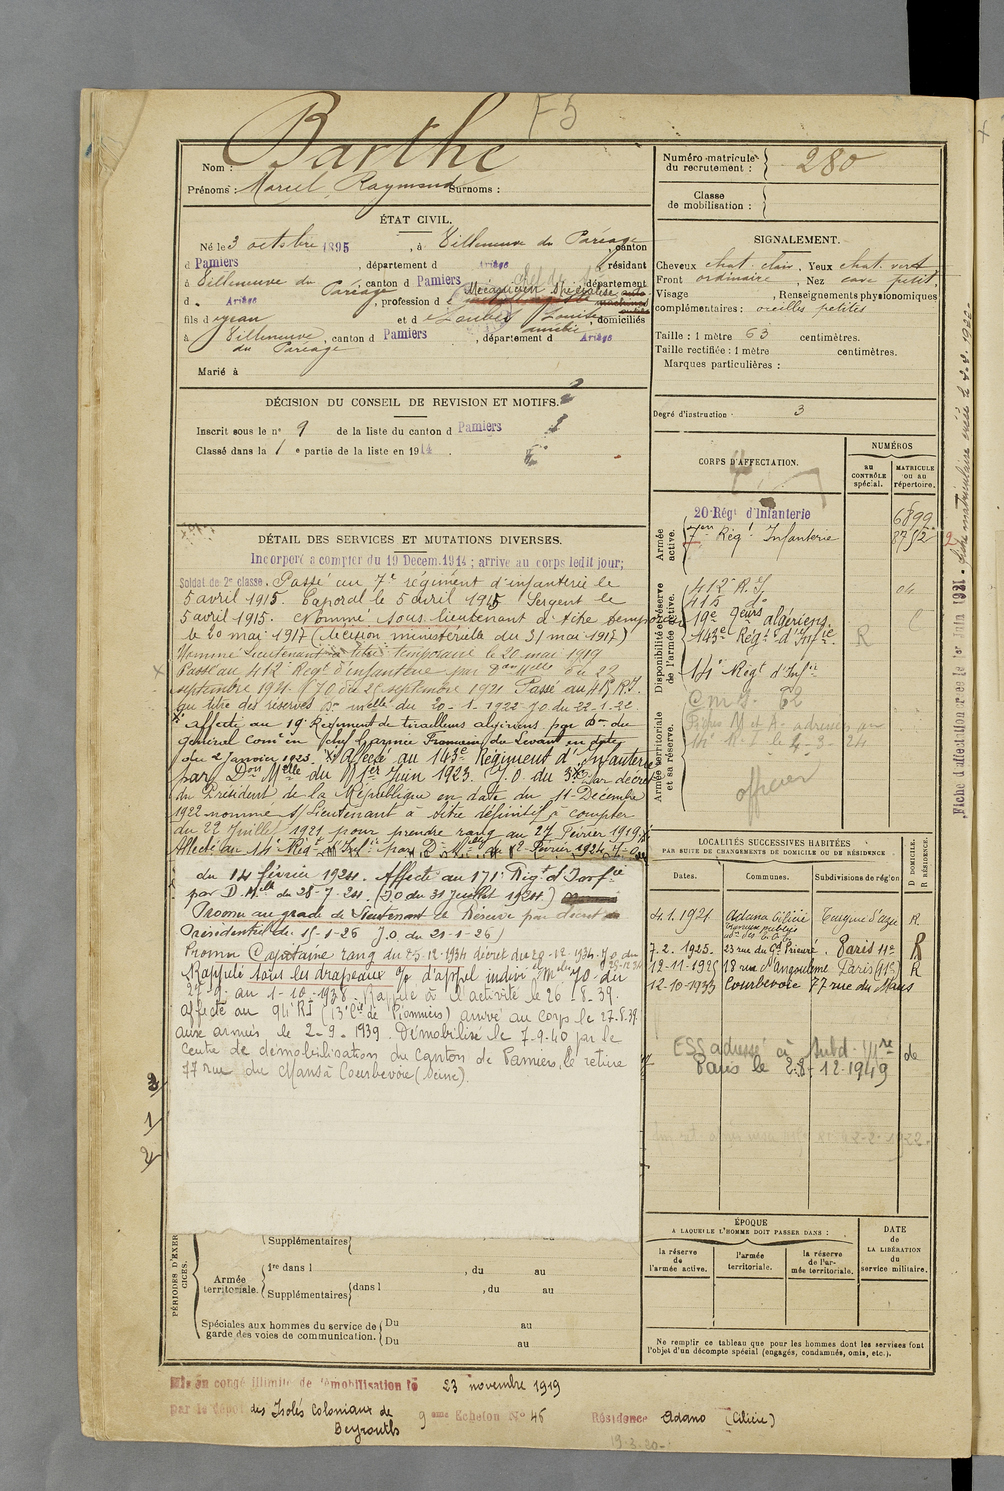 F5
Nom : Barthe
Prénoms : Marcel, Raymond Surnoms :
Numéro matricule du recrutement : 280
Classe de mobilisation :
ÉTAT CIVIL.
Né le 3 octobre 1895, à Villeneuve du Paréage, canton
d Pamiers, département d Ariège, résidant
à Villeneuve du Paréage, canton d Pamiers, département
d Ariège, profession d Mécanicien spécialisé
fils d Jean et d Loubès Louise, domiciliés
à Villeneuve du Paréage, canton d Pamiers, département d Ariège
Marié à
SIGNALEMENT.
Cheveux chat. clair, Yeux chat. vert
Front ordinaire, Nez cave petit,
Visage , Renseignements physionomiques
complémentaires : oreilles petites
Taille : 1 mètre 63 centimètres.
Taille rectifiée : 1 mètre centimètres.
Marques particulières :
Degré d'instruction : 3
DÉCISION DU CONSEIL DE REVISION ET MOTIFS.
Inscrit sous le n° 9 de la liste du canton d Pamiers
Classé dans la 1e partie de la liste en 1914.
CORPS D'AFFECTATION.
NUMÉROS
au CONTRÔLE spécial.
MATRICULE OU AU répertoire.
Armée active.
20 Régt d'Infanterie 6899
7em Régt Infanterie 8752
Disponibilité et réserve de l'armée active.
412e R.I.
415 do
19e Tirrs algériens.
143e Régt d'Infie R
14e Régt d'Infie
Armée territoriale et sa réserve.
C m I. 62
Fiches M et A. adressées au
14e R.I le 4-3-24
officier
DÉTAIL DES SERVICES ET MUTATIONS DIVERSES.
Incorporé à compter du 19 Decem. 1914 ; arrivé au corps ledit jour;
Soldat de 2e classe. Passé au 7e régiment d'infanterie le
5 avril 1915. Caporal le 5 avril 1915 Sergent le
5 avril 1915. Nommé sous lieutenant à titre temporaire
le 20 mai 1917 (décision ministérielle du 31 mai 1917)
Nommé Lieutenant à titre temporaire le 20 mai 1919
Passé au 412e Régt d'infanterie par Don Melle du 22
septembre 1921. Passé au 415 R.I.
au titre des réserves Dn melle du 20-1-1922 JO du 22-1-22
Affecté au 19e Régiment de tirailleurs algériens par Dn du
Général Comt en Chef l'armée Française du Levant en date
du 2 janvier 1923. Affecté au 143e Régiment d'Infanterie
par Don Melle du 1er Juin 1923. J.O. du Par décret
du Président de la République en date du 11 Décembre
1922 nommé s/Lieutenant à titre définitif à compter
du 22 Juillet 1921 pour prendre rang au 27 Février 1919.
Affecté au 14e Régt d'Infie par D. Melle du 12 Février 1924
du 14 février 1924. Affecté au 171e Régt d'Infie
par D. Melle du 28-7-24. (JO du 31 Juillet 1924)
Promu au grade de Lieutenant de Réserve par décret
Présidentiel du 15-1-26 J.O. du 21-1-26)
Promu Capitaine rang du 25-12-1934 décret du 29-12-1934 J.O du
Rappelé sous les drapeaux o/ d'appel individuel du
27-9- au 1-10-1938. Rappelé à l'activité le 26-8-39.
affecté au 94e RI (13e Cie de Pionniers) arrivé au corps le 27.8.39.
aux armées le 2-9-1939. Démobilisé le 7-9-40 par le
centre de démobilisation du canton de Pamiers, se retire
77 rue du Mans à Courbevoie (Seine).
LOCALITÉS SUCCESSIVES HABITÉES
PAR SUITE DE CHANGEMENTS DE DOMICILE OU DE RÉSIDENCE.
Dates. Communes. Subdivisions de région. D DOMICILE. R RÉSIDENCE.
4.1.1921 Adana Cilicie Turquie d'asie R
7.2.1925. 23 rue du Gd Prieuré. Paris 11e R
12-11-1926 18 rue d'Angoulême Paris (11e) R
12-10-1933 Courbevoie 77 rue du Mans
ESS adressé à Subd. de
Paris le 28-12-1949
ÉPOQUE
A LAQUELLE L'HOMME DOIT PASSER DANS :
la réserve de l'armée active.
l'armée territoriale.
la réserve de l'armée territoriale.
DATE de LA LIBÉRATION du service militaire.
Ne remplir ce tableau que pour les hommes dont les services font
l'objet d'un décompte spécial (engagés, condamnés, omis, etc.).
PÉRIODES D'EXERCICES.
Supplémentaires
Armée territoriale.
1re dans l , du au
Supplémentaires dans l , du au
Spéciales aux hommes du service de garde des voies de communication.
Du au
Du au
Mis en congé illimité de démobilisation le 23 novembre 1919
par le dépôt des Isolés Coloniaux de Beyrouth 9eme Echelon N° 46 Résidence Adana (Cilicie)
19-3-20-
Fiche d'affectation créée le 1er Juin 1921.